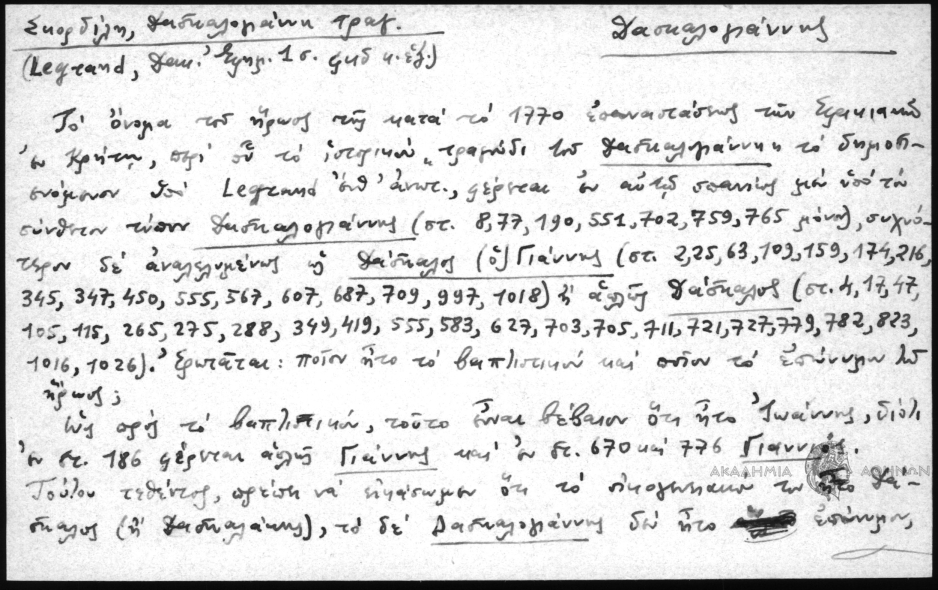 Σκορδίλη, Δασκαλογιάννη τραγ.
Δασκαλογιάννης
(Legrand, Δακ. Ἐφημ. 1 σ. φκδ κ. ἑξ.)
Τὸ ὄνομα τοῦ ἥρωος τῆς κατὰ τὸ 1770 ἐπαναστάσεως τῶν Σφακιανῶν
ἐν Κρήτῃ, περὶ οὗ τὸ ἱστορικὸν „τραγούδι τοῦ Δασκαλογιάννη" τὸ δημοσι-
ευόμενον ὑπὸ Legrand ἔνθ' ἀνωτ., φέρεται ἐν αὐτῷ σπανίως μὲν ὑπὸ τὸν
σύνθετον τύπον Δασκαλογιάννης (στ. 8,77, 190, 551, 702, 759, 765 μόνον), συχνό-
τερον δὲ ἀναλελυμένως ὡς Δάσκαλος (ὁ) Γιάννης (στ. 2,25, 63, 109, 159, 174, 216,
345, 347, 450, 555, 567, 607, 687, 709, 997, 1018) ἢ ἁπλῶς Δάσκαλος (στ. 4, 17, 47,
105, 115, 265, 275, 288, 349, 419, 555, 583, 627, 703, 705, 711, 721, 727, 779, 782, 823,
1016, 1026). Ἐρωτᾶται: ποῖον ἦτο τὸ βαπτιστικὸν καὶ ποῖον τὸ ἐπώνυμον τοῦ
ἥρωος;
Ὡς πρὸς τὸ βαπτιστικόν, τοῦτο εἶναι βέβαιον ὅτι ἦτο Ἰωάννης, διότι
ἐν στ. 186 φέρεται ἁπλῶς Γιάννης καὶ ἐν στ. 670 καὶ 776 Γιαννιός.
Τούτου τεθέντος, πρέπει νὰ εἰκάσωμεν ὅτι τὸ οἰκογενειακόν του ἦτο Δά-
σκαλος (ἢ Δασκαλάκης), τὸ δὲ Δασκαλογιάννης δὲν ἦτο ἐπώνυμον,
ΑΚΑΔΗΜΙΑ ΑΘΗΝΩΝ